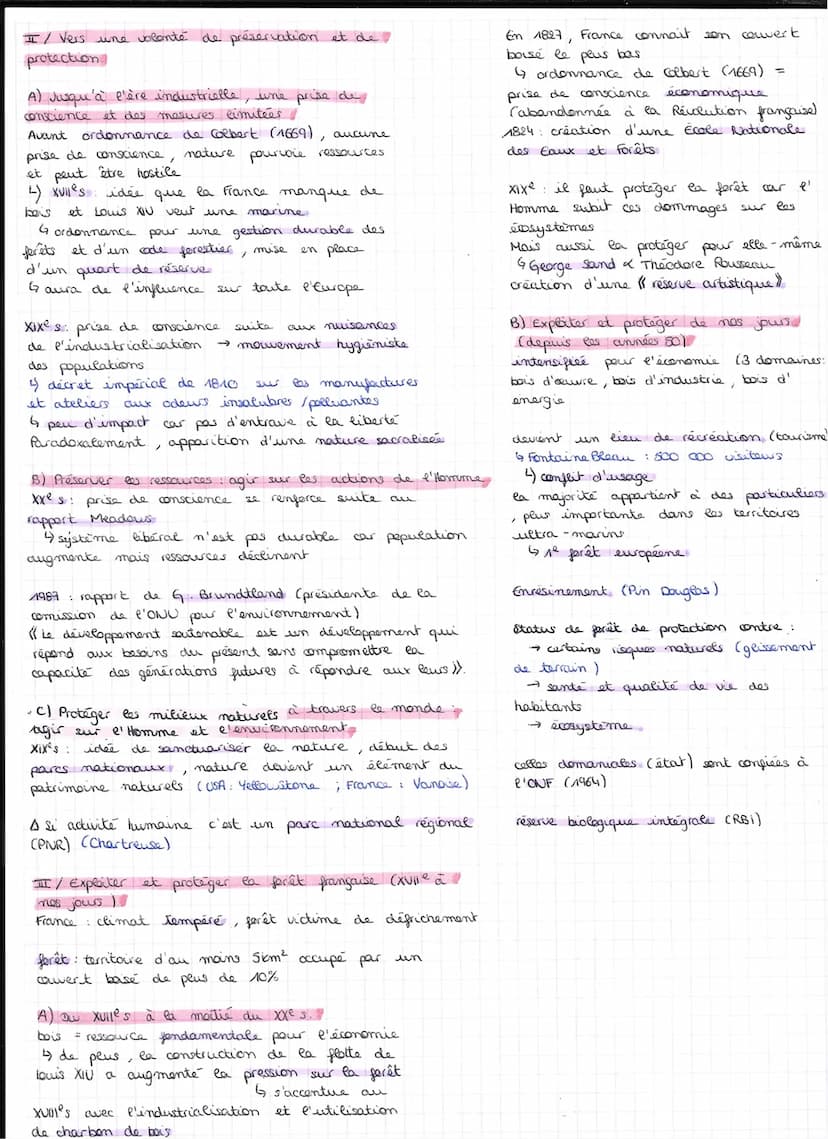 II / Vers une volonté de préservation et de
protection
A) Jusqu'à l'ère industrielle, une prise de
conscience et des mesures limitées
Avant ordonnance de Colbert (1669), aucune
prise de conscience, nature pourvoie ressources
et peut être hostile
↳ XVIIe s : idée que la France manque de
bois et Louis XIV veut une marine
↳ ordonnance pour une gestion durable des
forêts et d'un code forestier, mise en place
d'un quart de réserve
↳ aura de l'influence sur toute l'Europe
XIXe s : prise de conscience suite aux nuisances
de l'industrialisation → mouvement hygiéniste
des populations
↳ décret impérial de 1810 sur les manufactures
et ateliers aux odeurs insalubres / polluantes
↳ peu d'impact car pas d'entrave à la liberté
Paradoxalement, apparition d'une nature sacralisée
B) Préserver les ressources : agir sur les actions de l'Homme
XXe s : prise de conscience se renforce suite au
rapport Meadows
↳ système libéral n'est pas durable car population
augmente mais ressources déclinent
1987 : rapport de G. Brundtland (présidente de la
comission de l'ONU pour l'environnement)
« Le développement soutenable est un développement qui
répond aux besoins du présent sans compromettre la
capacité des générations futures à répondre aux leurs ».
C) Protéger les milieux naturels à travers le monde :
agir sur l'Homme et l'environnement
XIXe s : idée de sanctuariser la nature, début des
parcs nationaux, nature devient un élément du
patrimoine naturels (USA : Yellowstone ; France : Vanoise)
Δ Si activité humaine c'est un parc national régional
(PNR) (Chartreuse)
III / Exploiter et protéger la forêt française (XVIIe à
nos jours)
France : climat tempéré, forêt victime de défrichement
forêt : territoire d'au moins 5km² occupé par un
couvert boisé de plus de 10%
A) Du XVIIe s à la moitié du XXe s.
bois = ressource fondamentale pour l'économie
↳ de plus, la construction de la flotte de
Louis XIV a augmenté la pression sur la forêt
↳ s'accentue au
XVIIIe s avec l'industrialisation et l'utilisation
de charbon de bois
En 1827, France connait son couvert
boisé le plus bas
↳ ordonnance de Colbert (1669) =
prise de conscience économique
(abandonnée à la Révolution française)
1824 : création d'une École Nationale
des Eaux et Forêts
XIXe : il faut protéger la forêt car l'
Homme subit ces dommages sur les
écosystèmes
Mais aussi la protéger pour elle-même
↳ George Sand & Théodore Rousseau
création d'une « réserve artistique »
B) Exploiter et protéger de nos jours
(depuis les années 50)
intensifiée pour l'économie (3 domaines:
bois d'œuvre, bois d'industrie, bois d'
énergie
devient un lieu de récréation (tourisme)
↳ FontaineBleau : 500 000 visiteurs
↳ conflit d'usage
la majorité appartient à des particuliers
, plus importante dans les territoires
ultra-marins
↳ 1e forêt européene
Enrésinement (Pin Douglas)
Status de forêt de protection contre :
→ certains risques naturels (glissement
de terrain)
→ santé et qualité de vie des
habitants
→ écosystème
celles domaniales (état) sont confiées à
l'ONF (1964)
réserve biologique intégrale (RBI)